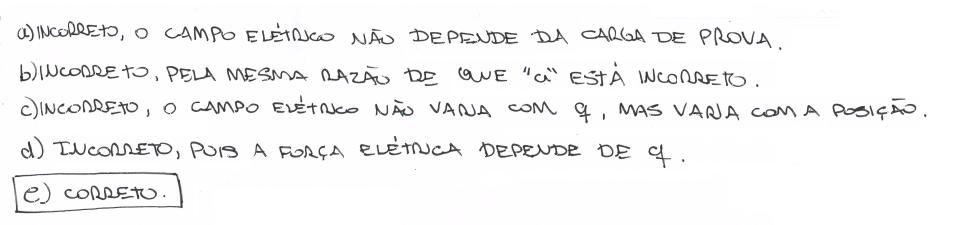 a) INCORRETO, O CAMPO ELÉTRICO NÃO DEPENDE DA CARGA DE PROVA.
b) INCORRETO, PELA MESMA RAZÃO DE QUE "a" ESTÁ INCORRETO.
c) INCORRETO, O CAMPO ELÉTRICO NÃO VARIA COM q, MAS VARIA COM A POSIÇÃO.
d) INCORRETO, POIS A FORÇA ELÉTRICA DEPENDE DE q.
e) CORRETO.